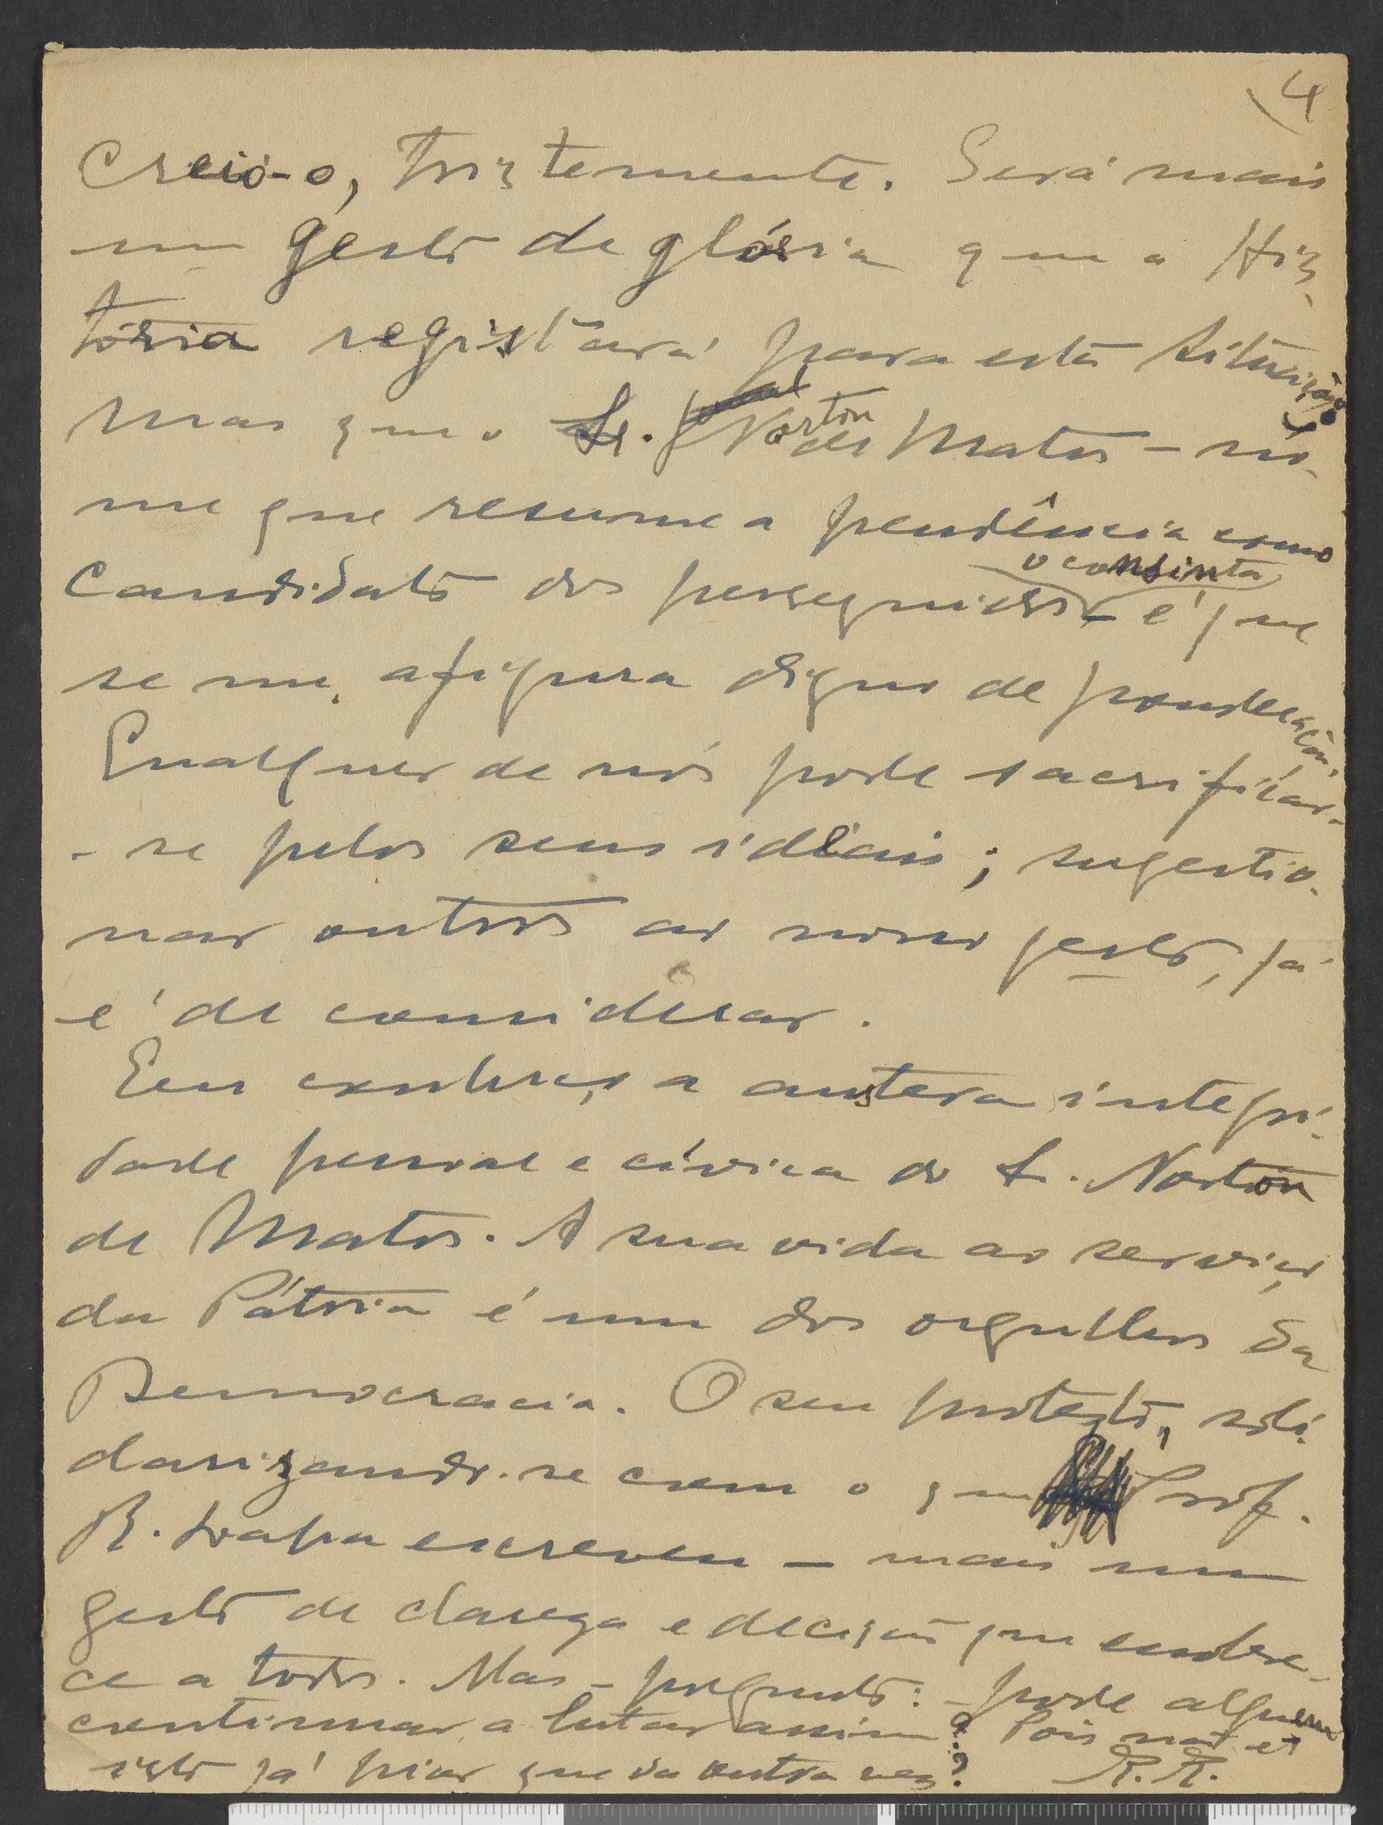 4
creio-o, tristemente. Será mais
um gesto de glória que a His-
tória registará para esta situação;
mas que o Sr. Norton de Matos – no-
me que resume a pendência como
candidato dos perseguidos – o consinta é que
se me afigura digno de ponderação.
Qualquer de nós pode sacrificar-
-se pelos seus ideais; sugestio-
nar outros ao nosso gesto, já
é de considerar.
Eu conheço a austera integri-
dade pessoal e cívica do Sr. Norton
de Matos. A sua vida ao serviço
da Pátria é um dos orgulhos da
Democracia. O seu protesto, soli-
darizando-se com o que Prof.
R. Lapa escreveu – mais um
gesto de clareza e decisão que enobre-
ce a todos. Mas – pregunto: – pode alguem
continuar a lutar assim? Pois não é
isto já pior que da outra vez?
R. R.